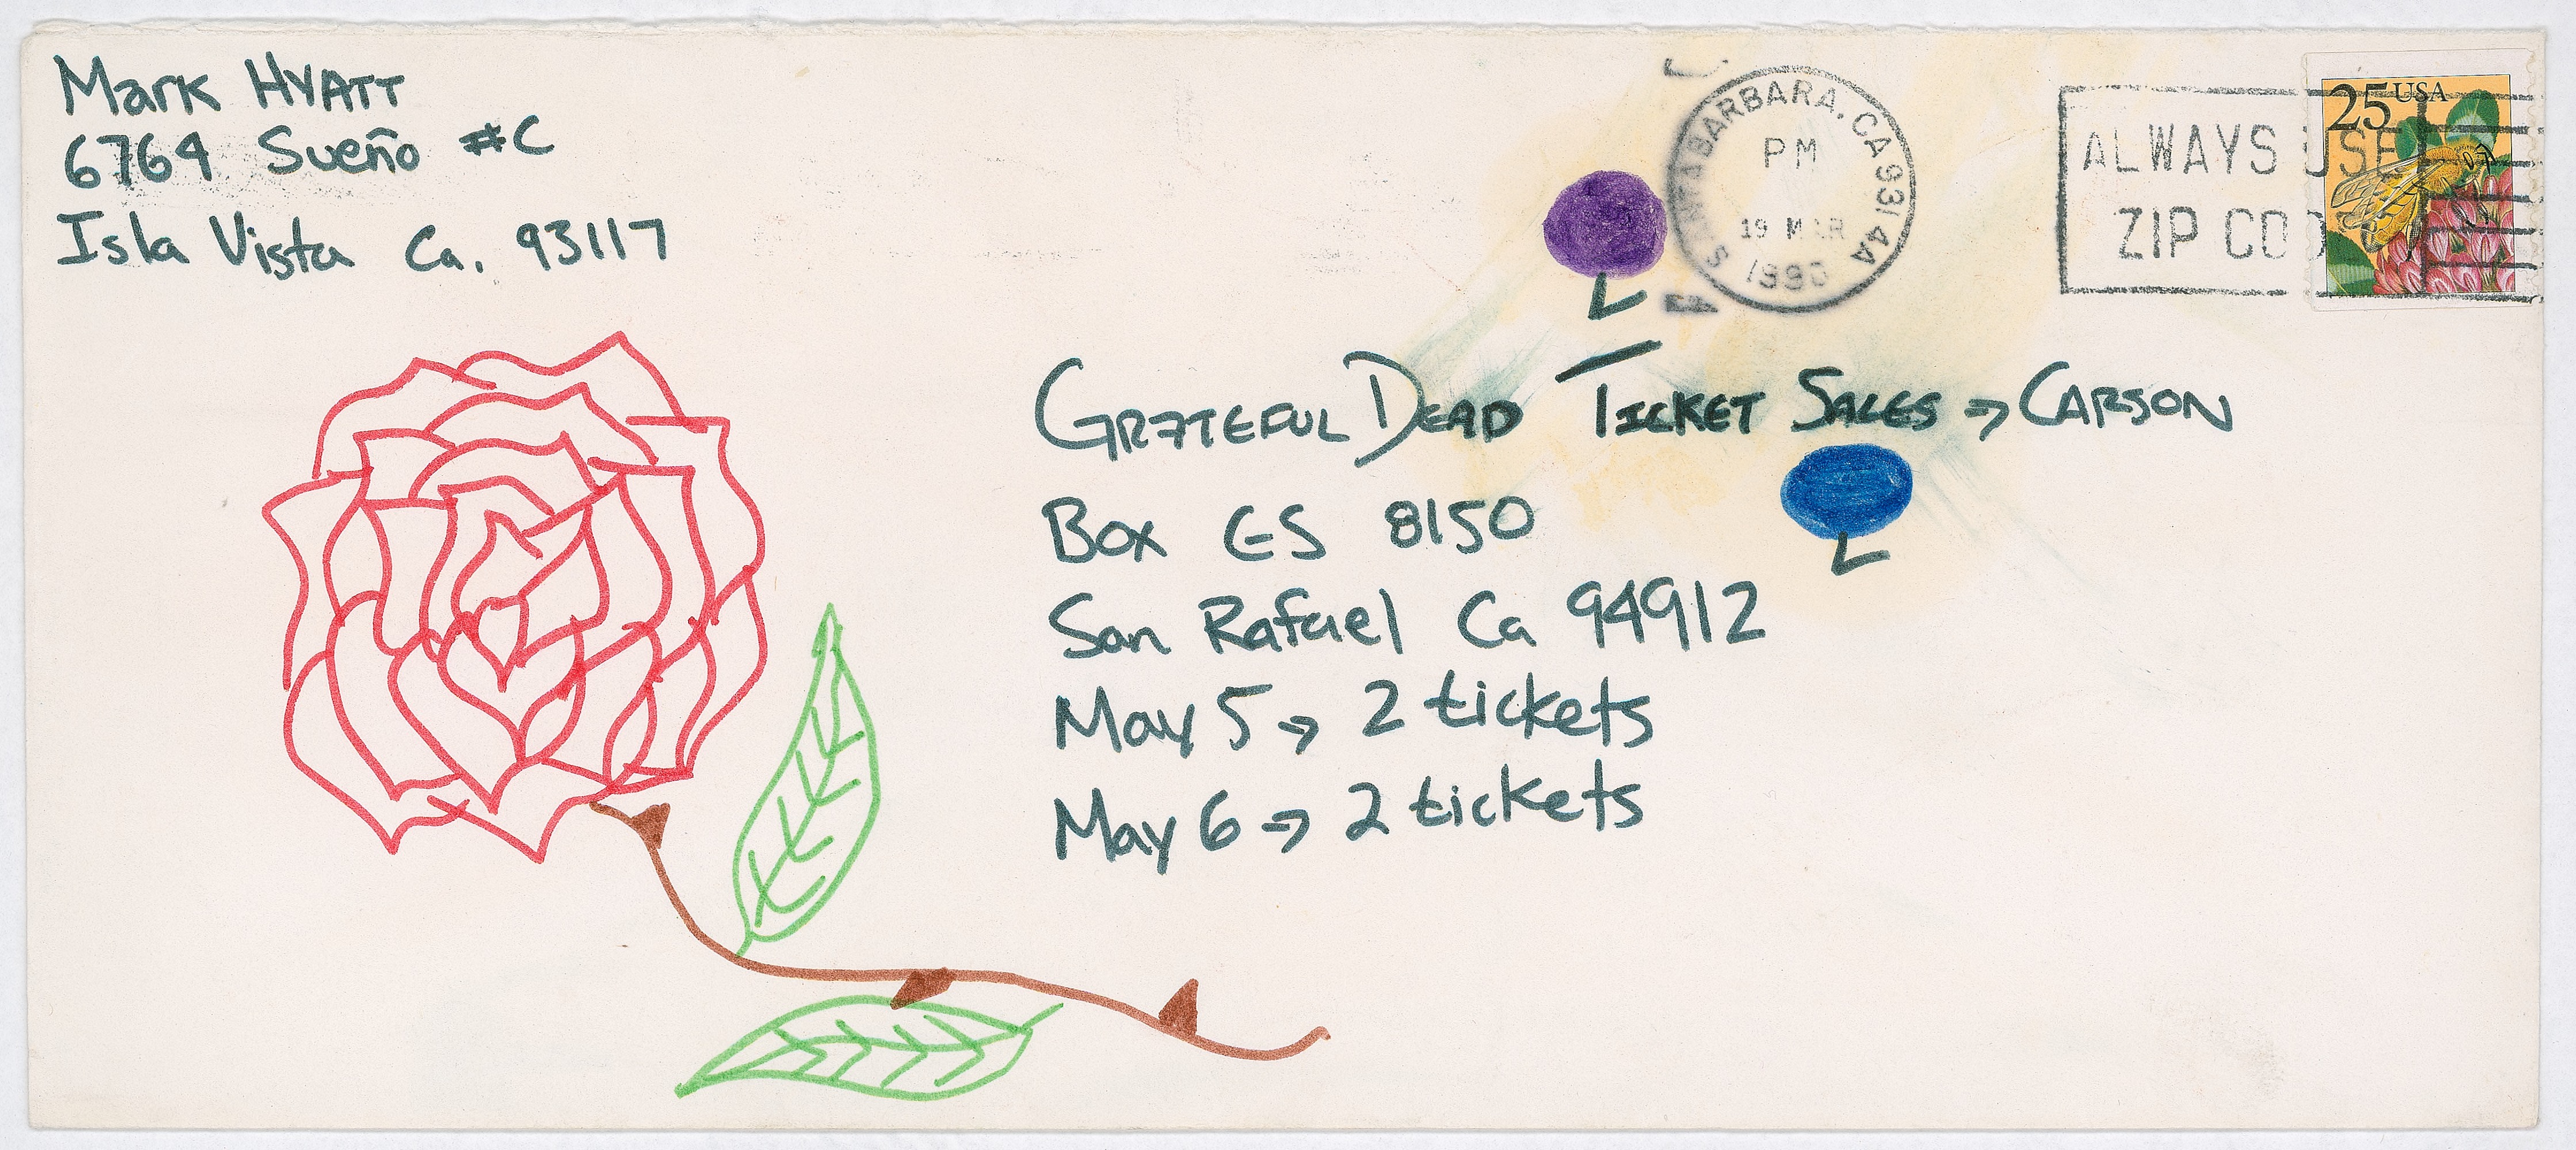 Mark HYATT
6764 Sueño #C
Isla Vista Ca. 93117
SANTA BARBARA, CA 931 4A
PM
19 MAR
1990
ALWAYS USE
ZIP CODE
25 USA
L
GRATEFUL DEAD TICKET SALES → CARSON
L
Box GS 8150
San Rafael Ca 94912
May 5 → 2 tickets
May 6 → 2 tickets